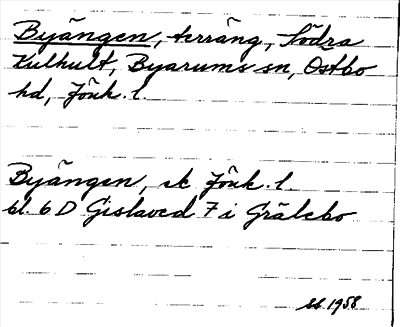 Byängen, terräng, Södra
Kulhult, Byarums sn, Östbo
hd, Jönk. l.
Byängen, ek Jönk. l.
bl. 6 D Gislaved 7 i Grälebo
LL 1958